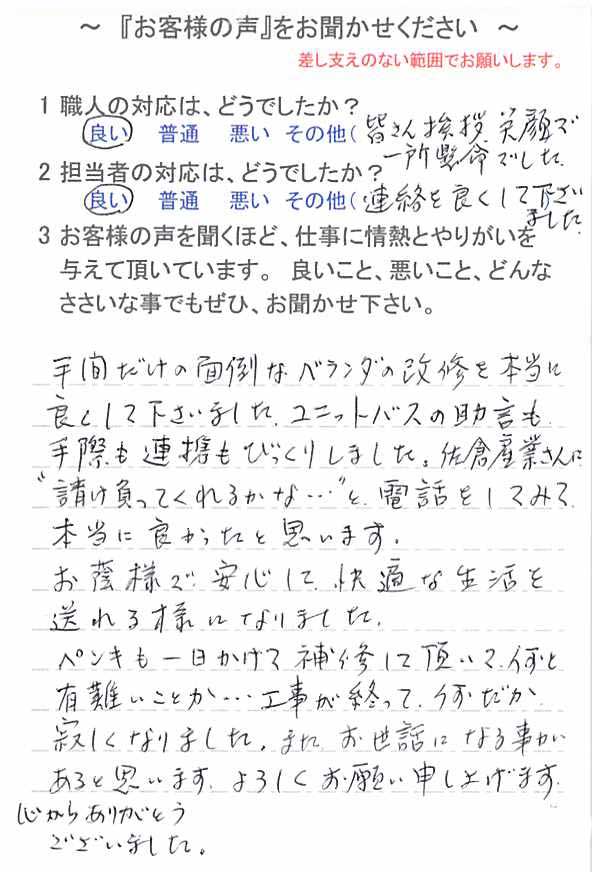 ～ 『お客様の声』をお聞かせください ～
差し支えのない範囲でお願いします。
1 職人の対応は、どうでしたか？
良い 普通 悪い その他( 皆さん挨拶 笑顔で
一所懸命でした。
2 担当者の対応は、どうでしたか？
良い 普通 悪い その他( 連絡を良くして下さい
ました。
3 お客様の声を聞くほど、仕事に情熱とやりがいを
与えて頂いています。 良いこと、悪いこと、どんな
ささいな事でもぜひ、お聞かせ下さい。
手間だけの面倒な、ベランダの改修を本当に
良くして下さいました。ユニットバスの助言も
手際も連携もびっくりしました。佐倉産業さんに
“請け負ってくれるかな…”と、電話をしてみて
本当に良かったと思います。
お蔭様で、安心して、快適な生活を
送れる様になりました。
ペンキも一日かけて補修して頂いて、何と
有難いことか…工事が終って、何だか
寂しくなりました。また、お世話になる事が
あると思います。よろしくお願い申し上げます。
心からありがとう
ございました。